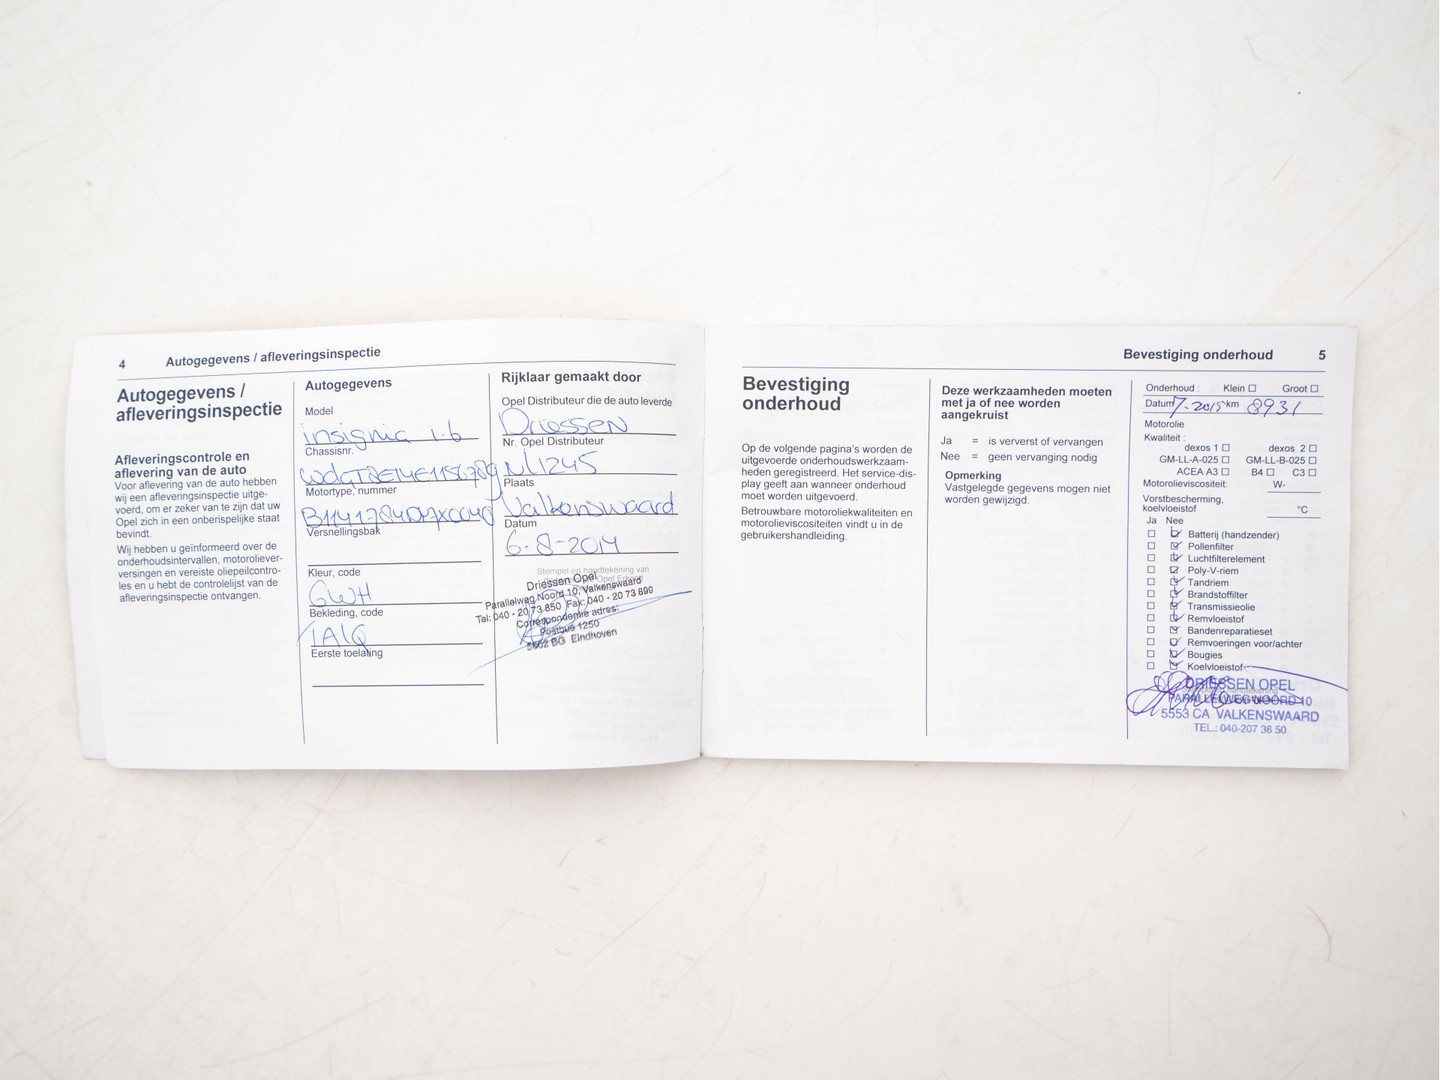 4 Autogegevens / afleveringsinspectie
Autogegevens /
afleveringsinspectie
Afleveringscontrole en
aflevering van de auto
Voor aflevering van de auto hebben
wij een afleveringsinspectie uitge-
voerd, om er zeker van te zijn dat uw
Opel zich in een onberispelijke staat
bevindt.
Wij hebben u geïnformeerd over de
onderhoudsintervallen, motoroliever-
versingen en vereiste oliepeilcontro-
les en u hebt de controlelijst van de
afleveringsinspectie ontvangen.
Autogegevens
Model
insignia 1.6
Chassisnr.
Motortype, nummer
Versnellingsbak
Kleur, code
GWH
Bekleding, code
Eerste toelating
Rijklaar gemaakt door
Opel Distributeur die de auto leverde
Driessen
Nr. Opel Distributeur
NL1245
Plaats
Valkenswaard
Datum
6-8-2014
Stempel en handtekening van
Driessen Opel
Parallelweg Noord 10, Valkenswaard
Tel: 040 - 20 73 850 Fax: 040 - 20 73 899
Correspondentie adres:
Postbus 1250
5602 BG Eindhoven
Bevestiging onderhoud 5
Bevestiging
onderhoud
Op de volgende pagina's worden de
uitgevoerde onderhoudswerkzaam-
heden geregistreerd. Het service-dis-
play geeft aan wanneer onderhoud
moet worden uitgevoerd.
Betrouwbare motoroliekwaliteiten en
motorolieviscositeiten vindt u in de
gebruikershandleiding.
Deze werkzaamheden moeten
met ja of nee worden
aangekruist
Ja = is ververst of vervangen
Nee = geen vervanging nodig
Opmerking
Vastgelegde gegevens mogen niet
worden gewijzigd.
Onderhoud : Klein Groot
Datum 7-2015 km 8931
Motorolie
Kwaliteit :
dexos 1 dexos 2
GM-LL-A-025 GM-LL-B-025
ACEA A3 B4 C3
Motorolieviscositeit: W-
Vorstbescherming,
koelvloeistof °C
Ja Nee
Batterij (handzender)
Pollenfilter
Luchtfilterelement
Poly-V-riem
Tandriem
Brandstoffilter
Transmissieolie
Remvloeistof
Bandenreparatieset
Remvoeringen voor/achter
Bougies
Koelvloeistof
DRIESSEN OPEL
PARALLELWEG NOORD 10
5553 CA VALKENSWAARD
TEL.: 040-207 38 50